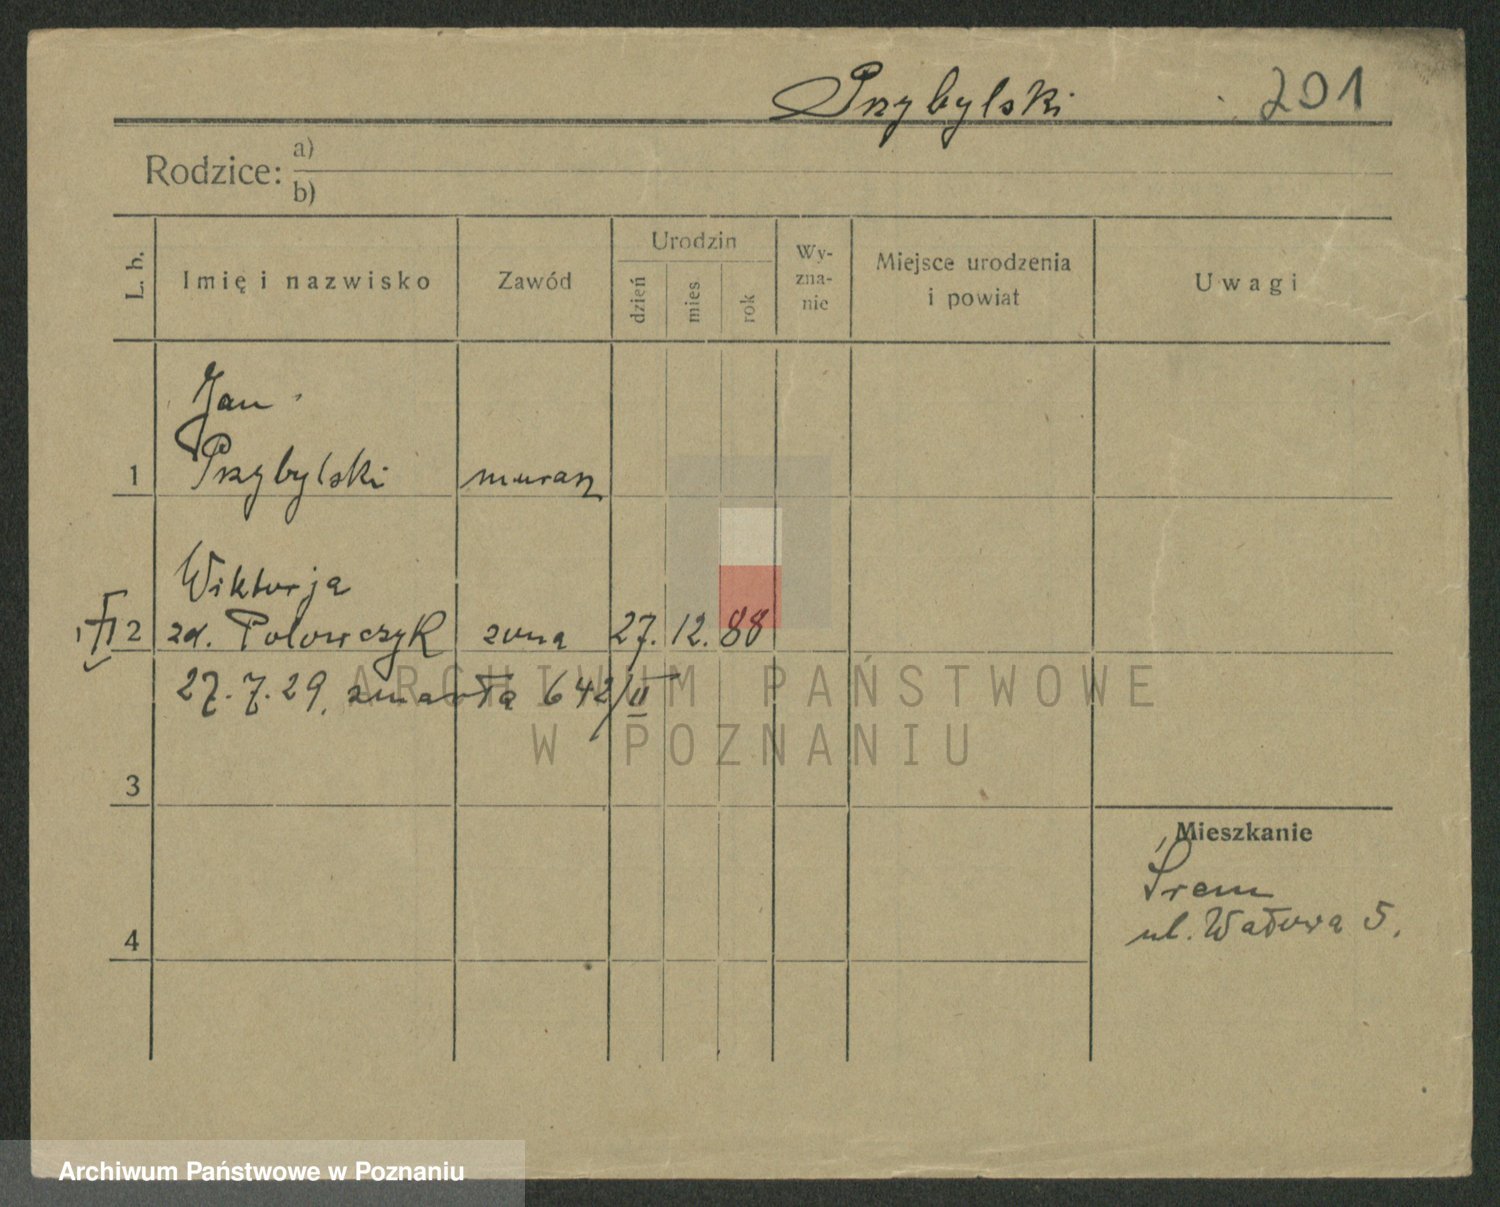 Przybylski 201
Rodzice: a)
b)
L. b. Imię i nazwisko Zawód Urodzin dzień mies. rok Wy-zna-nie Miejsce urodzenia i powiat Uwagi
Jan
1 Przybylski murarz
Wiktorja
2 zd. Polowczyk żona 27. 12. 88
27.7.29. zmarła 642/II
3
Mieszkanie
Śrem
ul. Wałowa 5.
4
ARCHIWUM PAŃSTWOWE
W POZNANIU
Archiwum Państwowe w Poznaniu